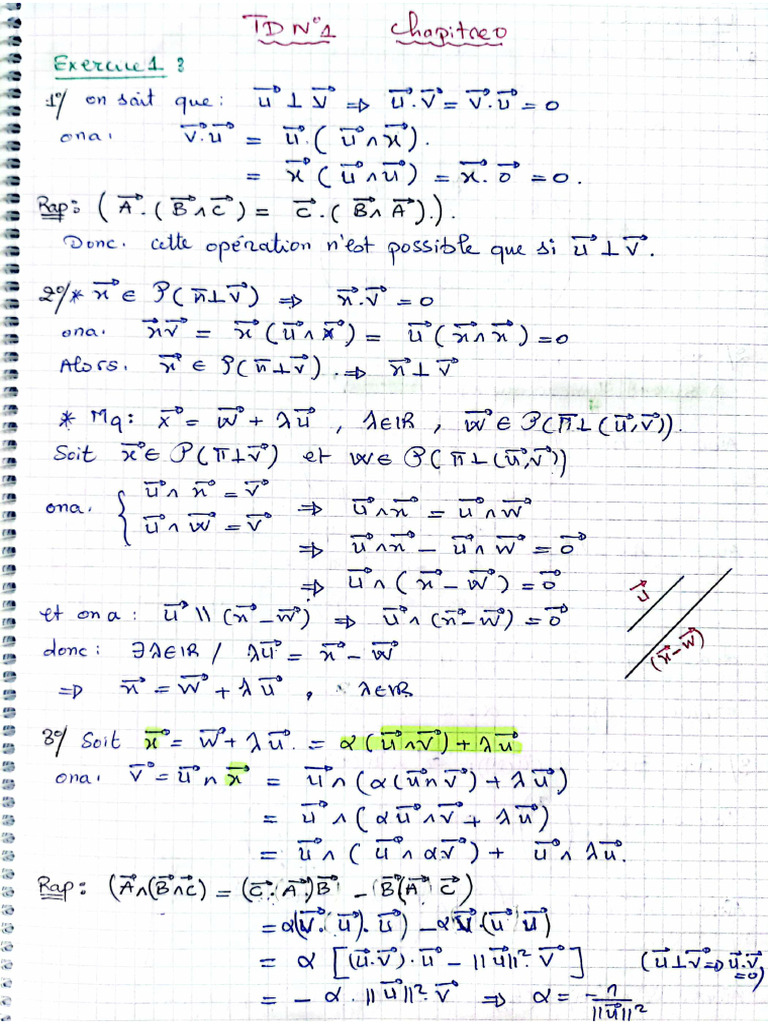 TD N°1 Chapitre 0
Exercice 1 :
1°/ on sait que : u⃗ ⊥ v⃗ ⇒ u⃗.v⃗ = v⃗.u⃗ = 0
ona : v⃗.u⃗ = u⃗.( u⃗∧x⃗ ).
= x⃗ ( u⃗∧u⃗ ) = x⃗. 0⃗ = 0.
Rap : ( A⃗.( B⃗∧C⃗ ) = C⃗.( B⃗∧A⃗ ).).
Donc. cette opération n'est possible que si u⃗ ⊥ v⃗.
2°/ * x⃗ ∈ P( π⊥v⃗ ) ⇒ x⃗.v⃗ = 0
ona. x⃗v⃗ = x⃗ ( u⃗∧x⃗ ) = u⃗ ( x⃗∧x⃗ ) = 0
Alors. x⃗ ∈ P( π⊥v⃗ ). ⇒ x⃗ ⊥ v⃗
* Mq : x⃗ = w⃗ + λu⃗ , λ∈IR , w⃗ ∈ P(π⊥(u⃗,v⃗)).
Soit x⃗ ∈ P( π⊥v⃗ ) et w ∈ P( π⊥(u⃗,v⃗))
ona. { u⃗∧x⃗ = v⃗ ⇒ u⃗∧x⃗ = u⃗∧w⃗
u⃗∧w⃗ = v⃗ ⇒ u⃗∧x⃗ - u⃗∧w⃗ = 0⃗
⇒ u⃗∧( x⃗ - w⃗ ) = 0⃗
u⃗
et on a : u⃗ \\ (x⃗-w⃗) ⇒ u⃗∧(x⃗-w⃗) = 0⃗
(x⃗-w⃗)
donc : ∃λ∈IR / λu⃗ = x⃗ - w⃗
⇒ x⃗ = w⃗ + λu⃗ , λ∈IR
3°/ Soit x⃗ = w⃗ + λu⃗. = α ( u⃗∧v⃗ ) + λu⃗
ona. v⃗ = u⃗∧x⃗ = u⃗∧( α( u⃗∧v⃗ ) + λu⃗ )
= u⃗∧( αu⃗∧v⃗ + λu⃗ )
= u⃗∧( u⃗∧αv⃗ ) + u⃗∧λu⃗.
Rap : (A⃗∧(B⃗∧C⃗) = (C⃗.A⃗)B⃗ - B⃗(A⃗ C⃗)
= α(v⃗.u⃗).u⃗) - αv⃗.(u⃗ u⃗)
= α [ (u⃗.v⃗).u⃗ - ||u⃗||².v⃗ ] (u⃗⊥v⃗ ⇒ u⃗.v⃗=0)
= - α.||u⃗||².v⃗ ⇒ α = -1/||u⃗||²